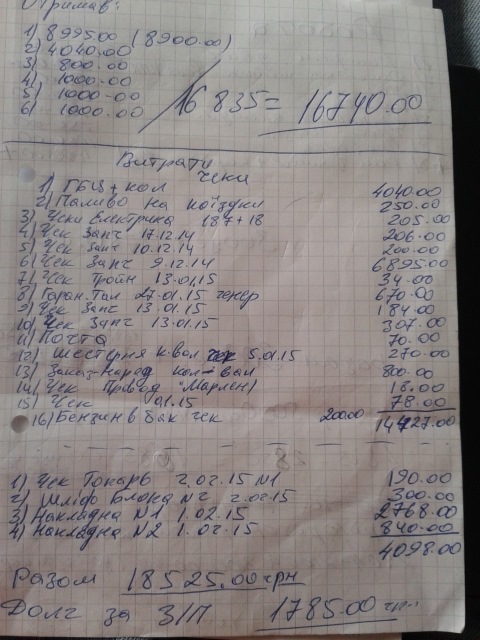 Отримав:
1) 8995.00 (8900.00)
2) 4040.00
3) 800.00
4) 1000.00
5) 1000.00
6) 1000.00
16 835 = 16740.00
Витрати
чеки
1) ГБЦ + кол 4040.00
2) Паливо на поїздки 250.00
3) Чеки Електрика 187+18 205.00
4) Чек Запч 17.12.14 206.00
5) Чек Запч 10.12.14 200.00
6) Чек Запч 9.12.14 6895.00
7) Чек Тройн 13.01.15 34.00
8) Гаран.Тал 27.01.15 670.00
9) Чек Запч 13.01.15 184.00
10) Чек Запч 13.01.15 307.00
11) Почта 70.00
12) Шестерня к.вал чек 5.01.15 270.00
13) Заказ-Наряд кол-вал 800.00
14) Чек Привод (Марлен) 18.00
15) Чек 01.15 78.00
16) Бензин в бак чек 200.00 14427.00
1) Чек Токарь 2.02.15 N1 190.00
2) Шліф блока N2 2.02.15 300.00
3) Накладна N1 1.02.15 2768.00
4) Накладна N2 1.02.15 840.00
4098.00
Разом 18525.00 грн
Долг за З/П 1785.00 грн.